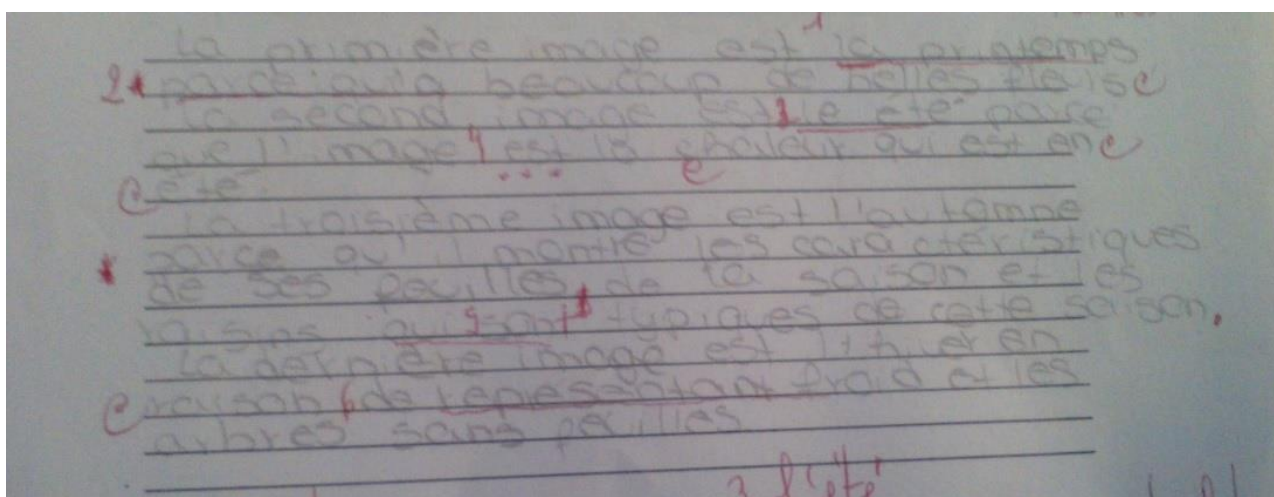 La première image est la printemps
parce qu'a beaucoup de belles
La second image est le été parce
que l'image est la chaleur qui est en
été.
La troisième image est l'automne
parce qu'il montre les caractéristiques
de ses feuilles de la saison et les
qui sont typiques de cette saison.
La dernière image est en
raison de représentant froid et les
arbres sans feuilles
3 l'été